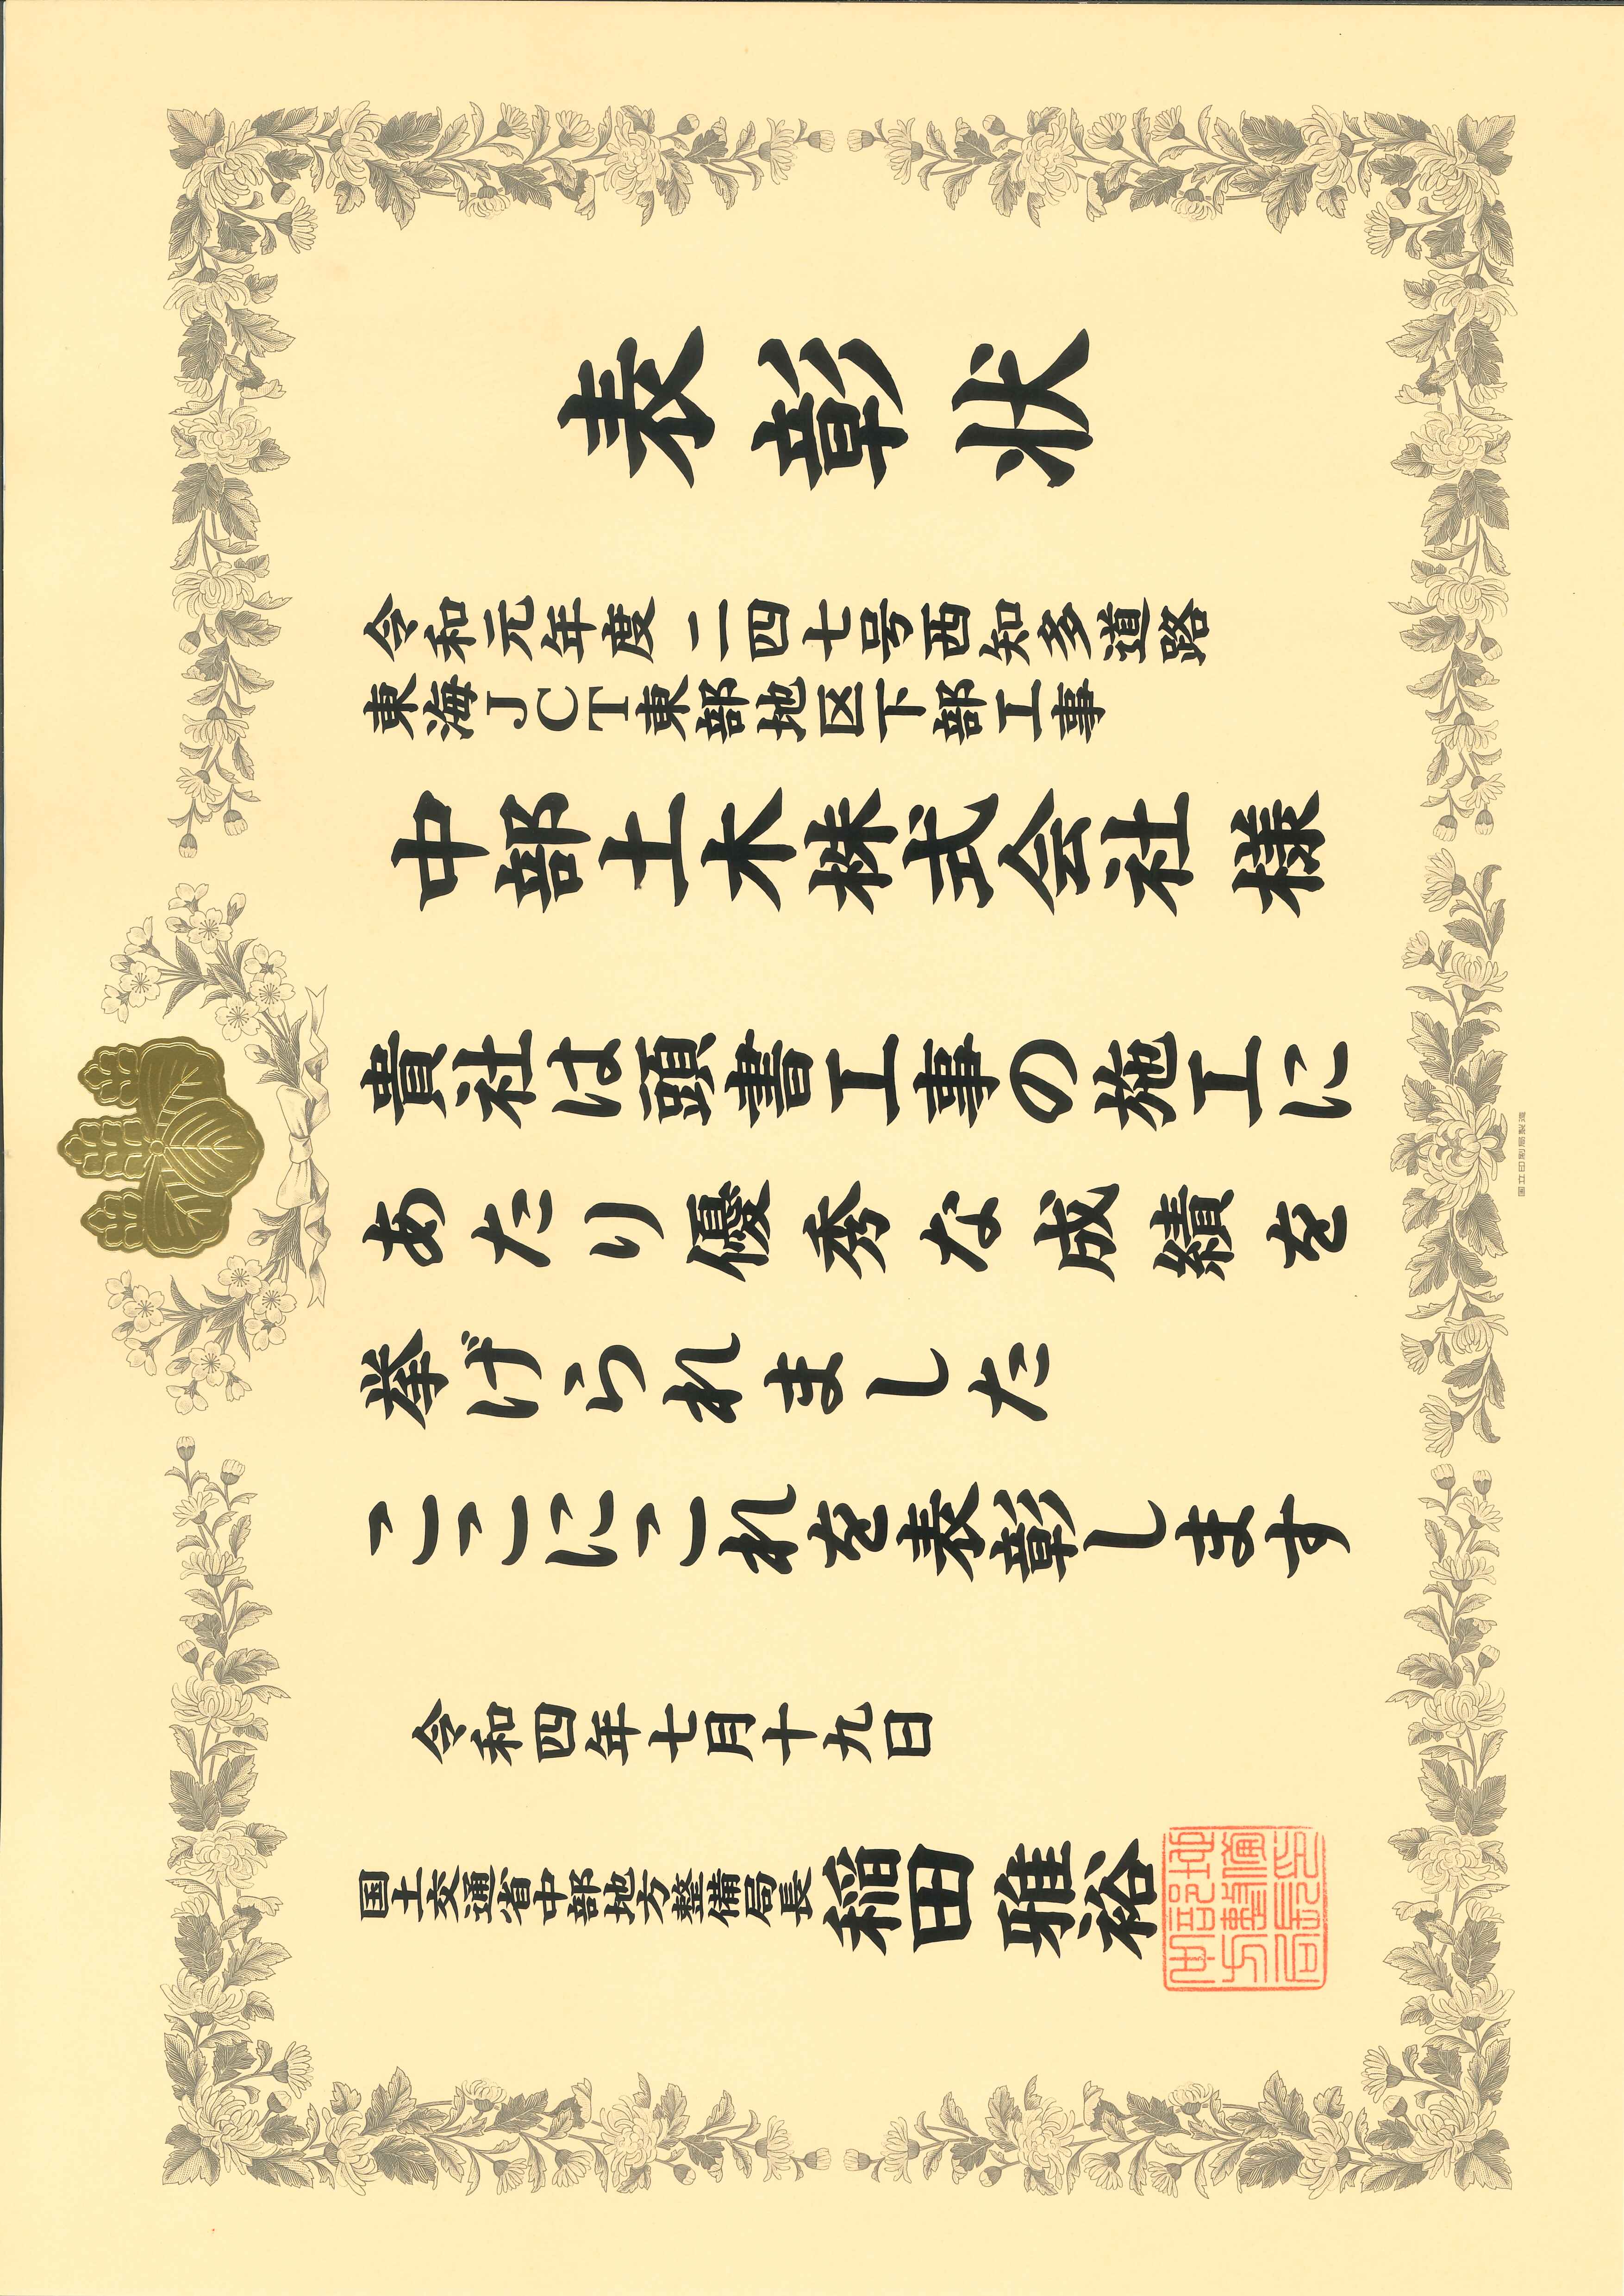 表彰状
令和元年度 二四七号西知多道路
東海JCT東部地区下部工事
中部土木株式会社 様
貴社は頭書工事の施工に
あたり優秀な成績を
挙げられました
ここにこれを表彰します
令和四年七月十九日
国土交通省中部地方整備局長 稲田 雅裕
国立印刷局製造